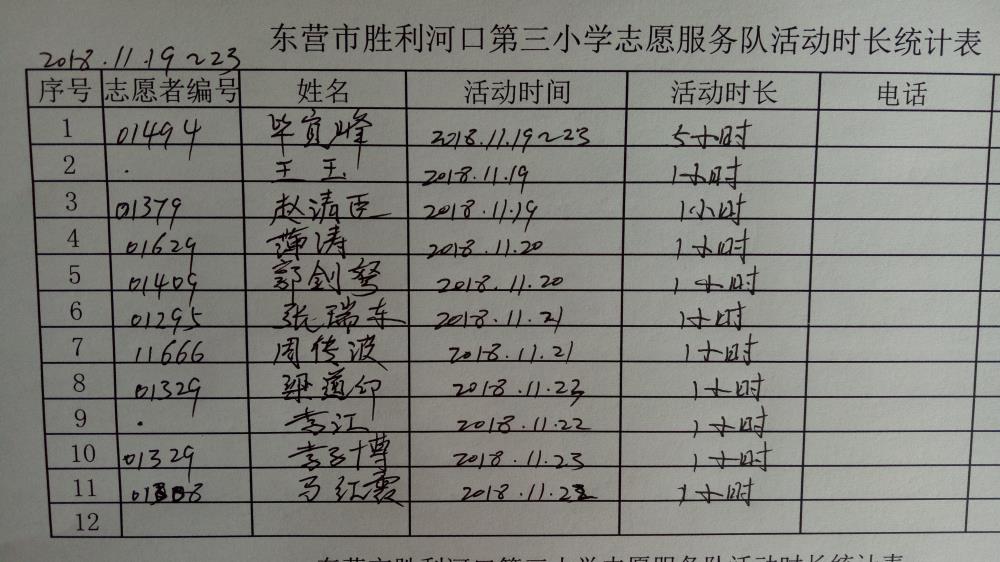 东营市胜利河口第三小学志愿服务队活动时长统计表
2018.11.19~23
序号 志愿者编号 姓名 活动时间 活动时长 电话
1 01494 毕宜峰 2018.11.19~23 5小时
2 . 王玉 2018.11.19 1小时
3 01379 赵清臣 2018.11.19 1小时
4 01629 薄涛 2018.11.20 1小时
5 01409 郭剑 2018.11.20 1小时
6 01295 张瑞东 2018.11.21 1小时
7 11666 周传波 2018.11.21 1小时
8 01329 梁道印 2018.11.23 1小时
9 . 李江 2018.11.22 1小时
10 01329 李子博 2018.11.23 1小时
11 马红霞 1小时
12
东营市胜利河口第三小学志愿服务队活动时长统计表